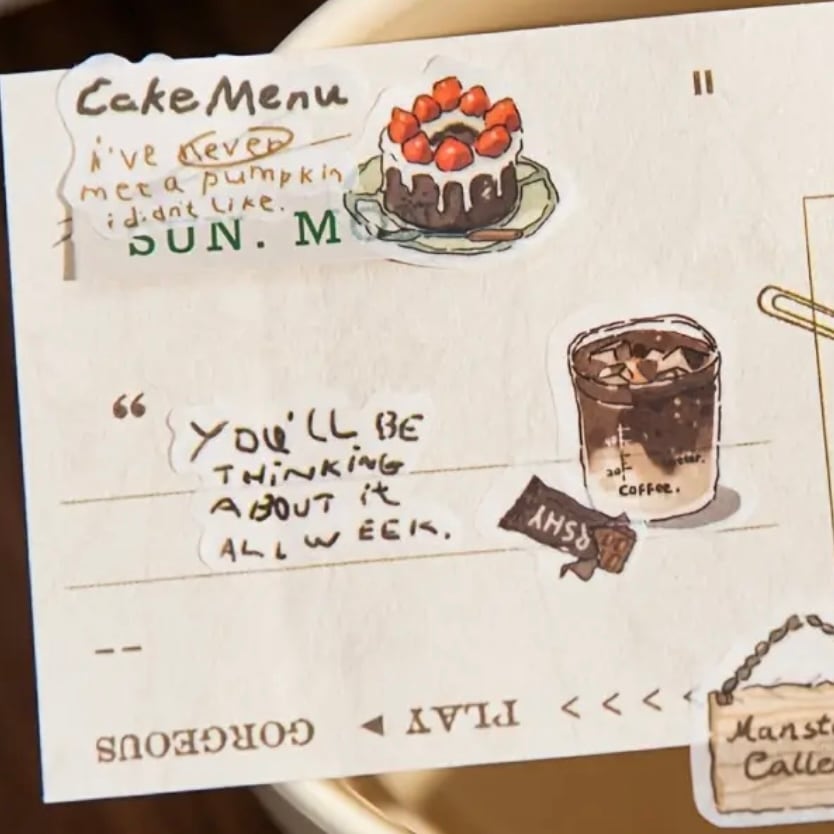 Cake Menu
i've never
met a pumpkin
i didn't like.
SUN. M
"
“ YOU'LL BE
THiNKiNG
ABOUT it
ALL WEEK.
20
Coffee.
RSHY
--
GORGEOUS ◀ PLAY < < < <
Manst
Calle